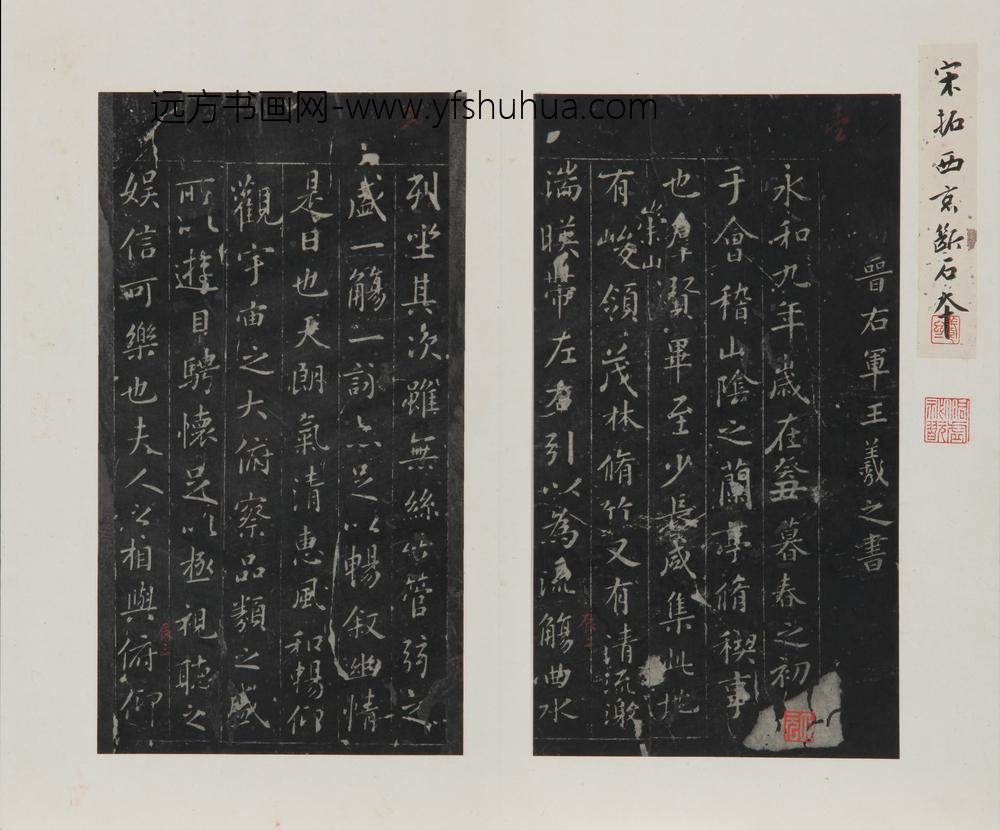 宋拓西京断石本
晉右軍王羲之書
永和九年歲在癸丑暮春之初
于會稽山陰之蘭亭脩稧事
也羣賢畢至少長咸集此地
有崇山峻領茂林脩竹又有清流激
湍暎帶左右引以為流觴曲水
列坐其次雖無絲竹管弦之
盛一觴一詠亦足以暢叙幽情
是日也天朗氣清惠風和暢仰
觀宇宙之大俯察品類之盛
所以遊目騁懷足以極視聽之
娛信可樂也夫人之相與俯仰
远方书画网-www.yfshuhua.com